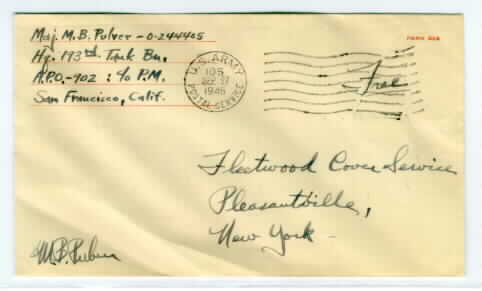 Maj. M.B. Pulver - O-244405
Hq. 193rd. Tank Bn.
A.P.O.-902 : c/o P.M.
San Francisco, Calif.
U.S. ARMY
105
1945
POSTAL SERVICE
Free
Fleetwood Cover Service
Pleasantville,
New York -
M.B. Pulver